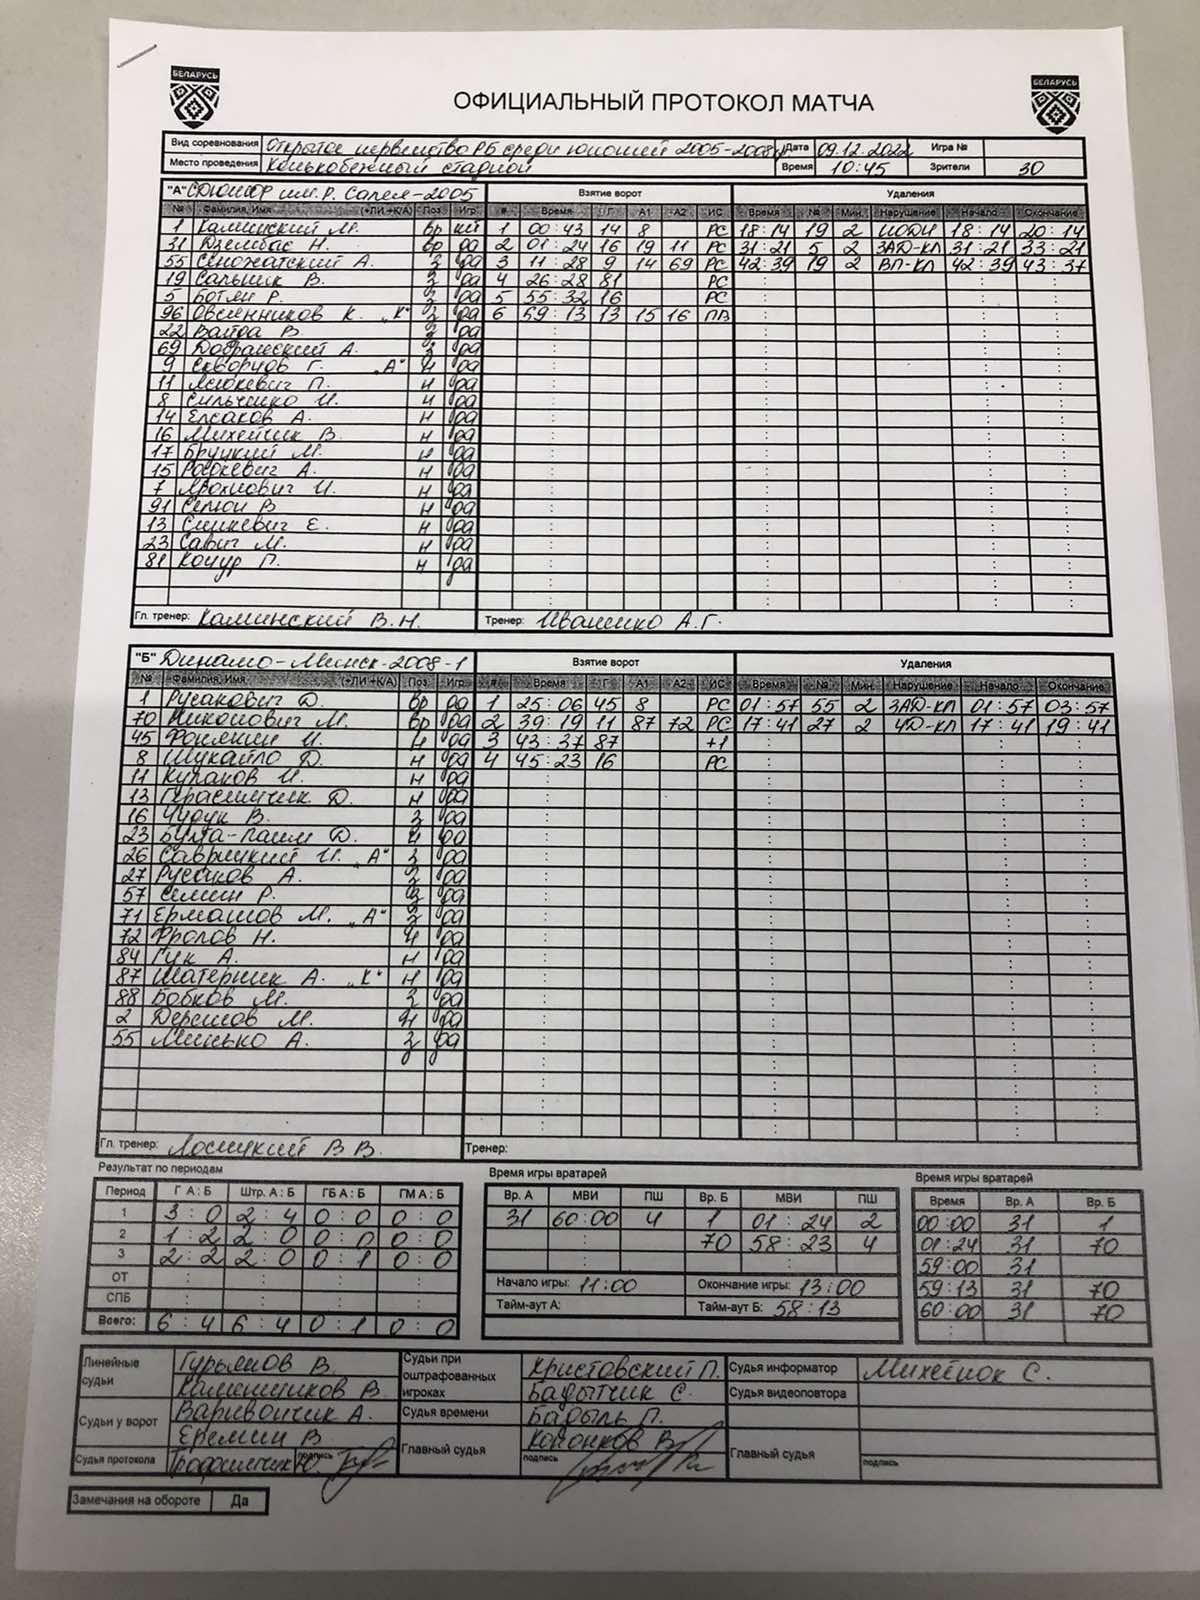 БЕЛАРУСЬ
БЕЛАРУСЬ
ОФИЦИАЛЬНЫЙ ПРОТОКОЛ МАТЧА
Вид соревнования Открытое первенство РБ среди юношей 2005-2008 Дата 09.12.2022 Игра №
Место проведения Конькобежный стадион Время 10:45 Зрители 30
"А" им. Р. Салея-2005 Взятие ворот Удаления
№ Фамилия, Имя (+ЛИ +К/А) Поз Игр # Время Г А1 А2 ИС Время № Мин. Нарушение Начало Окончание
1 Каминский М. вр 1 00:43 14 8 РС 18:14 19 2 18:14 20:14
31 Дзембас Н. вр да 2 01:24 16 19 11 РС 31:21 5 2 ЗАД-КЛ 31:21 33:21
55 Сеножатский А. з да 3 11:28 9 14 69 РС 42:39 19 2 ВП-КЛ 42:39 43:37
19 Сальник В. з да 4 26:28 81 РС
5 Ботян Р. з да 5 55:32 16 РС
96 Овсянников К. „К" з да 6 59:13 13 15 16 ПВ
22 Вайда В. з да
69 Добранский А. з да
9 Скворцов Г. „А" н да
11 П. н да
8 Сильченко И. н да
14 Елсаков А. н да
16 Михейчик В. н да
17 Бруцкий М. н да
15 А. н да
7 Ярохнович И. н да
91 Сенюн В н да
13 Синкевич Е. н да
23 Савич М. н да
81 Коцур П. н да
Гл. тренер: Каминский В.Н. Тренер: Иваненко А.Г.
"Б" Динамо-Минск-2008-1 Взятие ворот Удаления
№ Фамилия, Имя (+ЛИ +К/А) Поз Игр # Время Г А1 А2 ИС Время № Мин. Нарушение Начало Окончание
1 Русакович Д. вр да 1 25:06 45 8 РС 01:57 55 2 ЗАД-КЛ 01:57 03:57
70 Никонович М. вр да 2 39:19 11 87 72 РС 17:41 27 2 17:41 19:41
45 Фомкин И. н да 3 43:37 87 +1
8 Шукайло Д. н да 4 45:23 16 РС
11 Кулаков И. н да
13 Герасимчик Д. н да
16 Чидук В. з да
23 Д. н да
26 Саврицкий И. „А" з да
27 Русаков А. з да
57 Семин Р. з да
71 Ермашов М. „А" з да
72 Фролов Н. н да
84 Гук А. н да
87 Шатерник А. „К" н да
88 Бобков М. з да
2 Дершов М. н да
55 Минько А. з да
Гл. тренер: Лосицкий В В. Тренер:
Результат по периодам Время игры вратарей Время игры вратарей
Период Г А : Б Штр. А : Б ГБ А : Б ГМ А : Б Вр. А МВИ ПШ Вр. Б МВИ ПШ Время Вр. А Вр. Б
1 3:0 2:4 0:0 0:0 31 60:00 4 1 01:24 2 00:00 31 1
2 1:2 2:0 0:0 0:0 70 58:23 4 01:24 31 70
3 2:2 2:0 0:1 0:0 59:00 31
ОТ Начало игры: 11:00 Окончание игры: 13:00 59:13 31 70
СПБ Тайм-аут А: Тайм-аут Б: 58:13 60:00 31 70
Всего: 6:4 6:4 0:1 0:0
Линейные судьи Гурьянов В. Судьи при оштрафованных игроках Христовский П. Судья информатор Михейнок С.
Каменщиков В. Бадытчик С. Судья видеоповтора
Судьи у ворот Варивончик А. Судья времени Бадыль П.
Еремин В Главный судья Кononков В Главный судья
Судья протокола подпись подпись подпись
Замечания на обороте Да